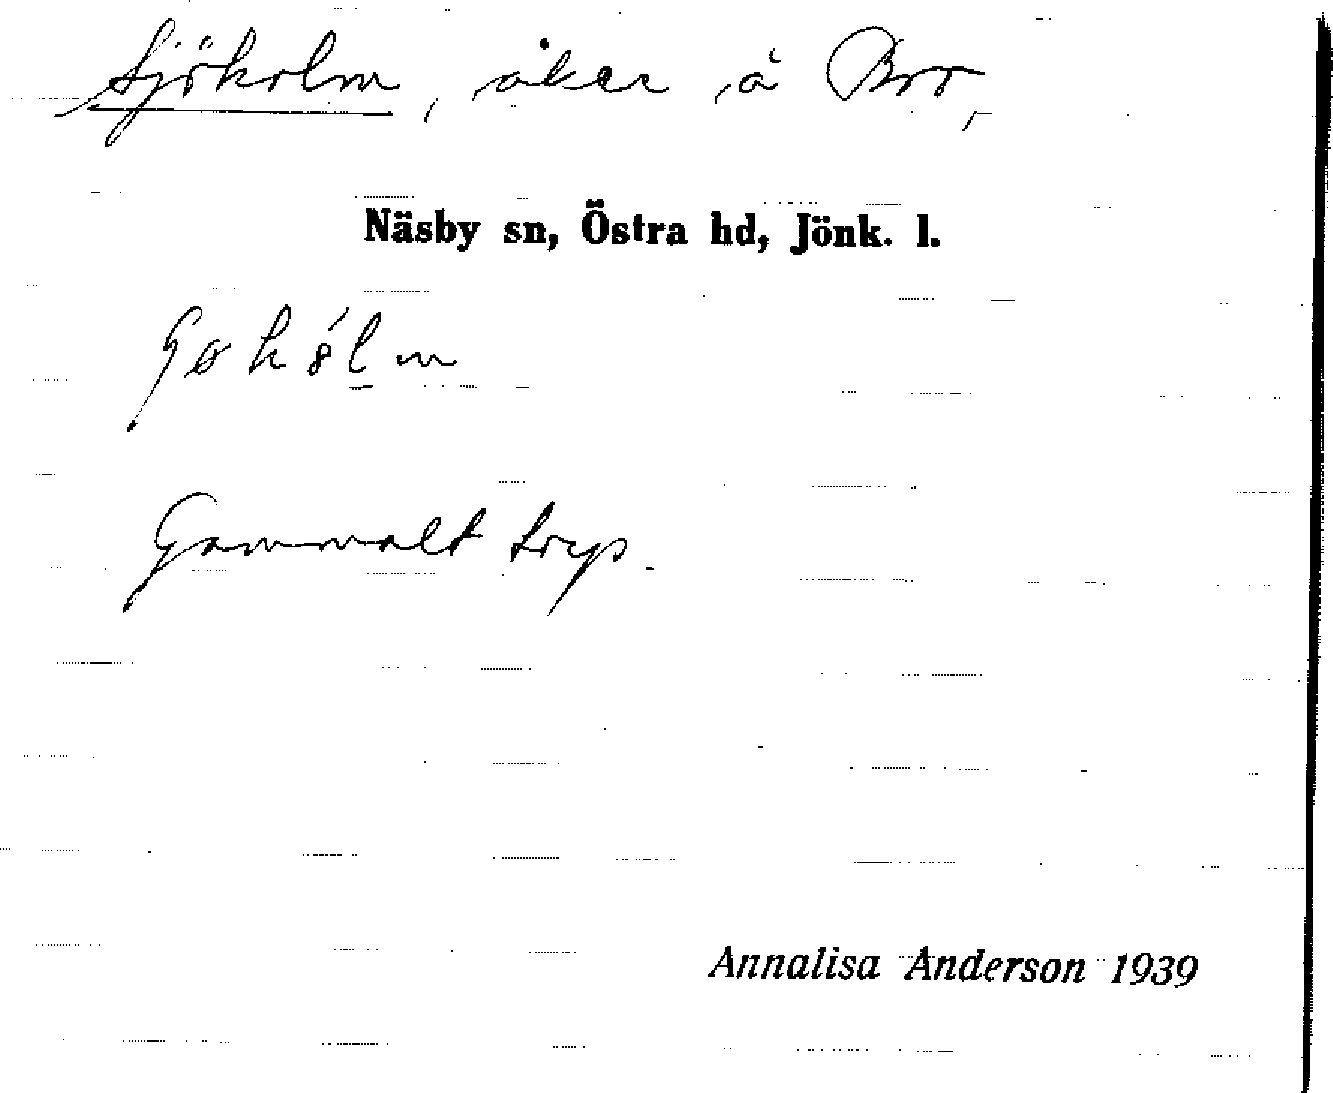 Sjöholm, åker å Bro,
Näsby sn, Östra hd, Jönk. l.
Gammalt torp.
Annalisa Anderson 1939